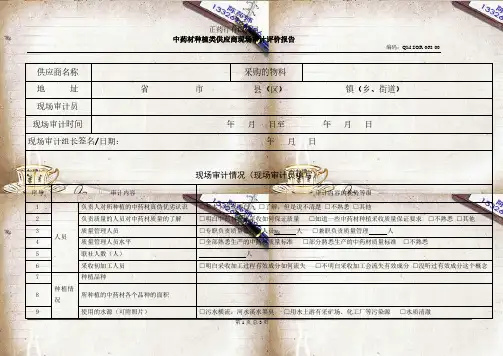 中药材种植类供应商现场审计评价报告
编码：QM-SOR-058-00
供应商名称 采购的物料
地 址 省 市 县（区） 镇（乡、街道）
现场审计员
现场审计时间 年 月 日至 年 月 日
现场审计组长签名/日期： 年 月 日
现场审计情况（现场审计员填写）
序号 审计内容
1 负责人对所种植的中药材真伪优劣认识 □了解，但是说不清楚 □不熟悉 □其他
2 负责质量的人员对中药材质量的了解 □明白 如何保证质量 □知道一些中药材种植采收质量保证要求 □不熟悉 □其他
3 人员 质量管理人员 □专职负责质量 人 □兼职负责质量管理 人
4 质量管理人员水平 □全部熟悉生产的中药材质量标准 □部分熟悉生产的中药材质量标准 □不熟悉
5 联社人数（人） 人
6 采收初加工人员 □明白采收加工过程有效成分如何流失 □不明白采收加工会流失有效成分 □没听过有效成分这个概念
7 种植情况 种植品种
8 所种植的中药材各个品种的面积
9 使用的水源（可附照片） □污水横流，河水溪水黑臭 □用水上游有采矿场、化工厂等污染源 □水质清澈
第 1 页 总 5 页